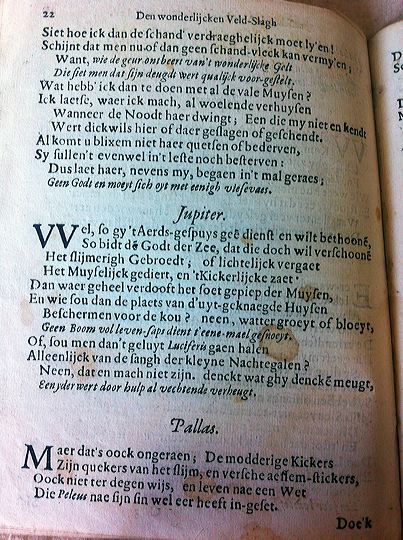 22 Den wonderlijcken Veld-Slagh
Siet hoe ick dan de schand' verdraeghelijck moet ly'en!
Schijnt dat men nu of dan geen schand-vleck kan vermy'en;
Want, wie de geur ontbeert van't wonderlijcke Gelt
Die siet men dat sijn deugdt wert qualijck voor-gestelt.
Wat hebb' ick dan te doen met al de vale Muysen?
Ick laetse, waer ick mach, al woelende verhuysen
Wanneer de Noodt haer dwingt; Een die my niet en kendt
Wert dickwils hier of daer geslagen of geschendt.
Al komt u blixem niet haer quetsen of bederven,
Sy sullen't evenwel in't leste noch besterven:
Dus laet haer, nevens my, begaen in't mal geraes;
Geen Godt en moeyt sich oyt met eenigh vlesevaes.
Jupiter.
VVel, so gy 'tAerds-gespuys geē dienst en wilt bethoonē,
So bidt dē Godt der Zee, dat die doch wil verschoonē
Het slijmerigh Gebroedt; of lichtelijck vergaet
Het Muyselijck gediert, en 'tKickerlijcke zaet
Dan waer geheel verdooft het soet gepiep der Muysen,
En wie sou dan de plaets van d'uyt-geknaegde Huysen
Beschermen voor de kou? neen, watter groeyt of bloeyt,
Geen Boom vol leven-saps dient t'eene-mael gesnoeyt.
Of, sou men dan't geluyt Luciferis gaen halen
Alleenlijck van de sangh der kleyne Nachtegalen?
Neen, dat en mach niet zijn. denckt wat ghy denckē meugt,
Een yder wert door hulp al vechtende verheugt.
Pallas.
Maer dat's oock ongeraen; De modderige Kickers
Zijn quekers van het slijm, en versche aessem-stickers,
Oock niet ter degen wijs, en leven nae een Wet
Die Peleus nae sijn sin wel eer heeft in-geset.
Doe'k